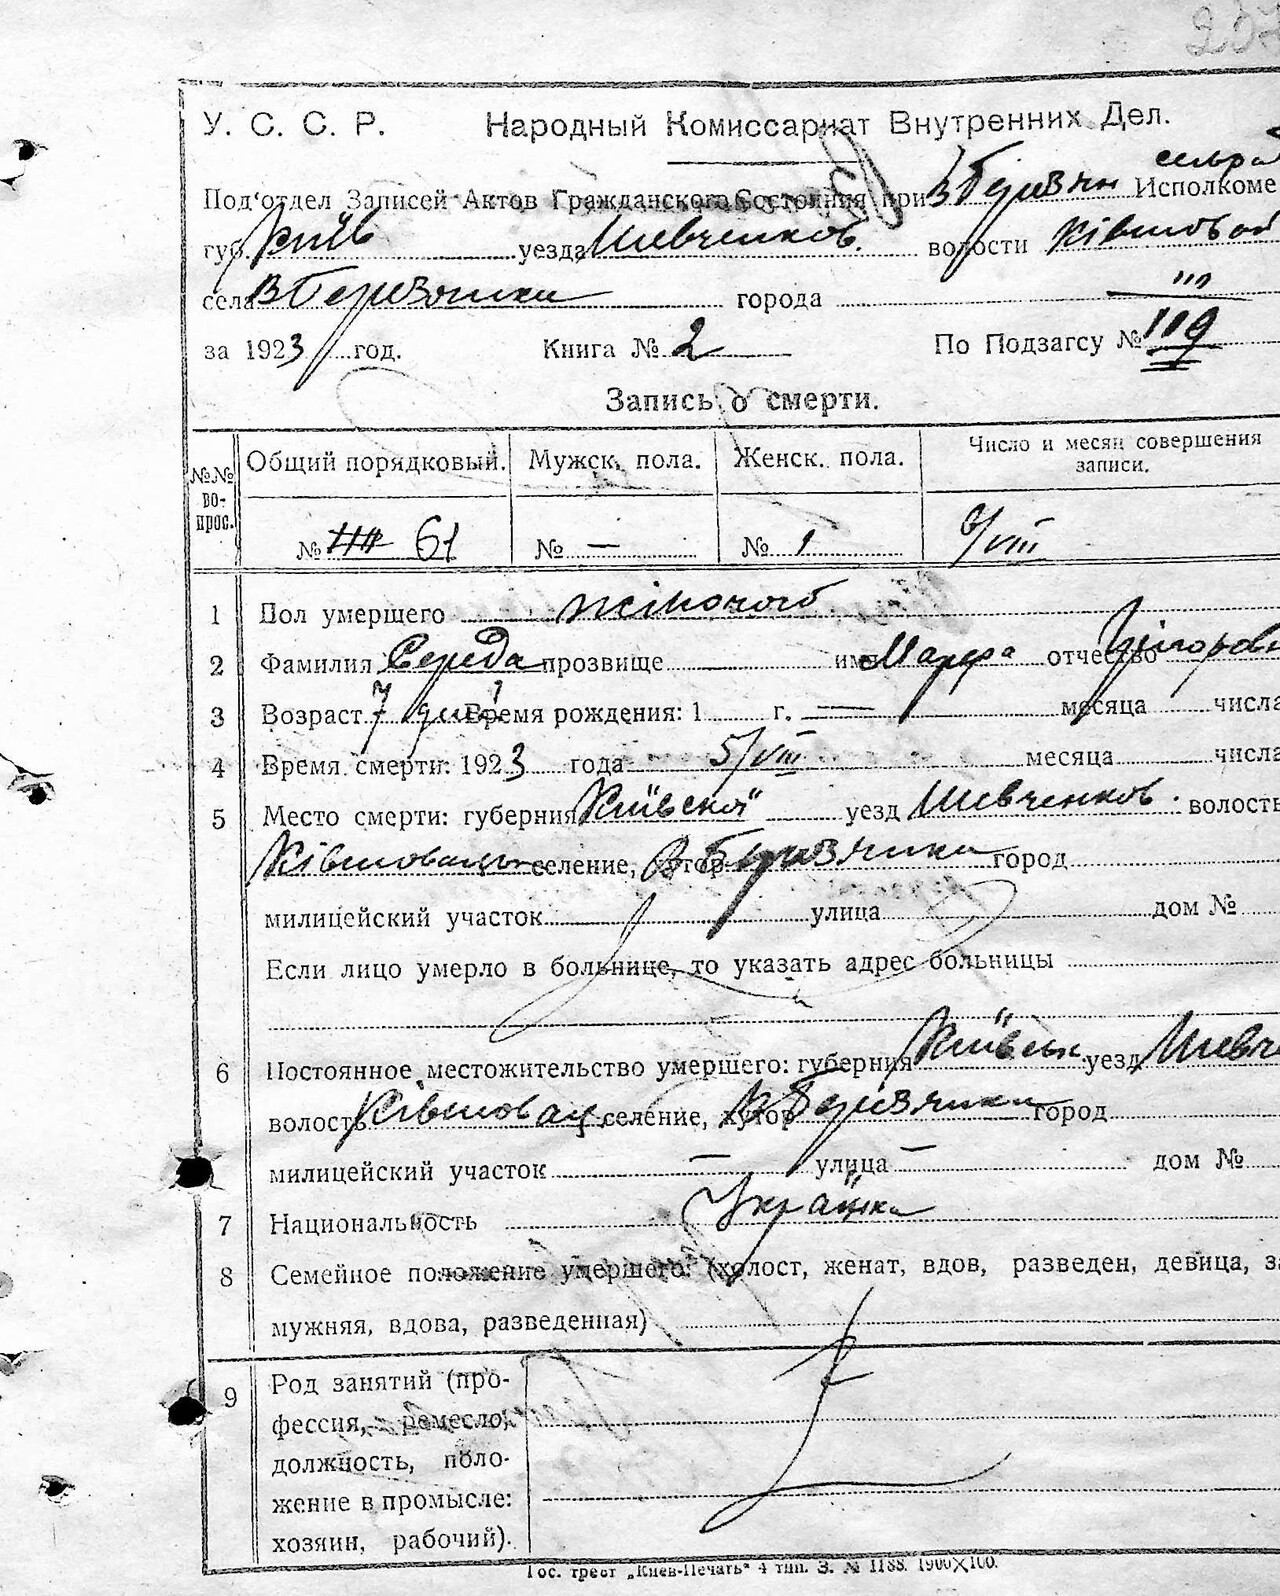 237
У. С. С. Р. Народный Комиссариат Внутренних Дел.
Под'отдел Записей Актов Гражданского Состояния при В Березян сельра Исполкоме
губ. Київ уезда Шевченков. волости
села В Березянки города
за 1923 год. Книга № 2 По Подзагсу № 119
Запись о смерти.
№№ вопрос. Общий порядковый. Мужск. пола. Женск. пола. Число и месяц совершения записи.
№ 61 № — № 1 6/VIII
1 Пол умершего жіночого
2 Фамилия Середа прозвище имя Марфа отчество Григоров
3 Возраст 7 днів Время рождения: 1 г. — месяца числа
4 Время смерти: 1923 года 5/VIII месяца числа
5 Место смерти: губерния Київська уезд Шевченков. волость
селение, хутор В Березянки город
милицейский участок улица дом №
Если лицо умерло в больнице, то указать адрес больницы
6 Постоянное местожительство умершего: губерния Київськ уезд Шевче
волость селение, хутор В Березянки город
милицейский участок — улица — дом №
7 Национальность Українка
8 Семейное положение умершего: (холост, женат, вдов, разведен, девица, за
мужняя, вдова, разведенная)
9 Род занятий (про-
фессия, ремесло,
должность, поло-
жение в промысле:
хозяин, рабочий).
Гос. трест „Киев-Печать" 4 тип. З. № 1188. 1900X100.